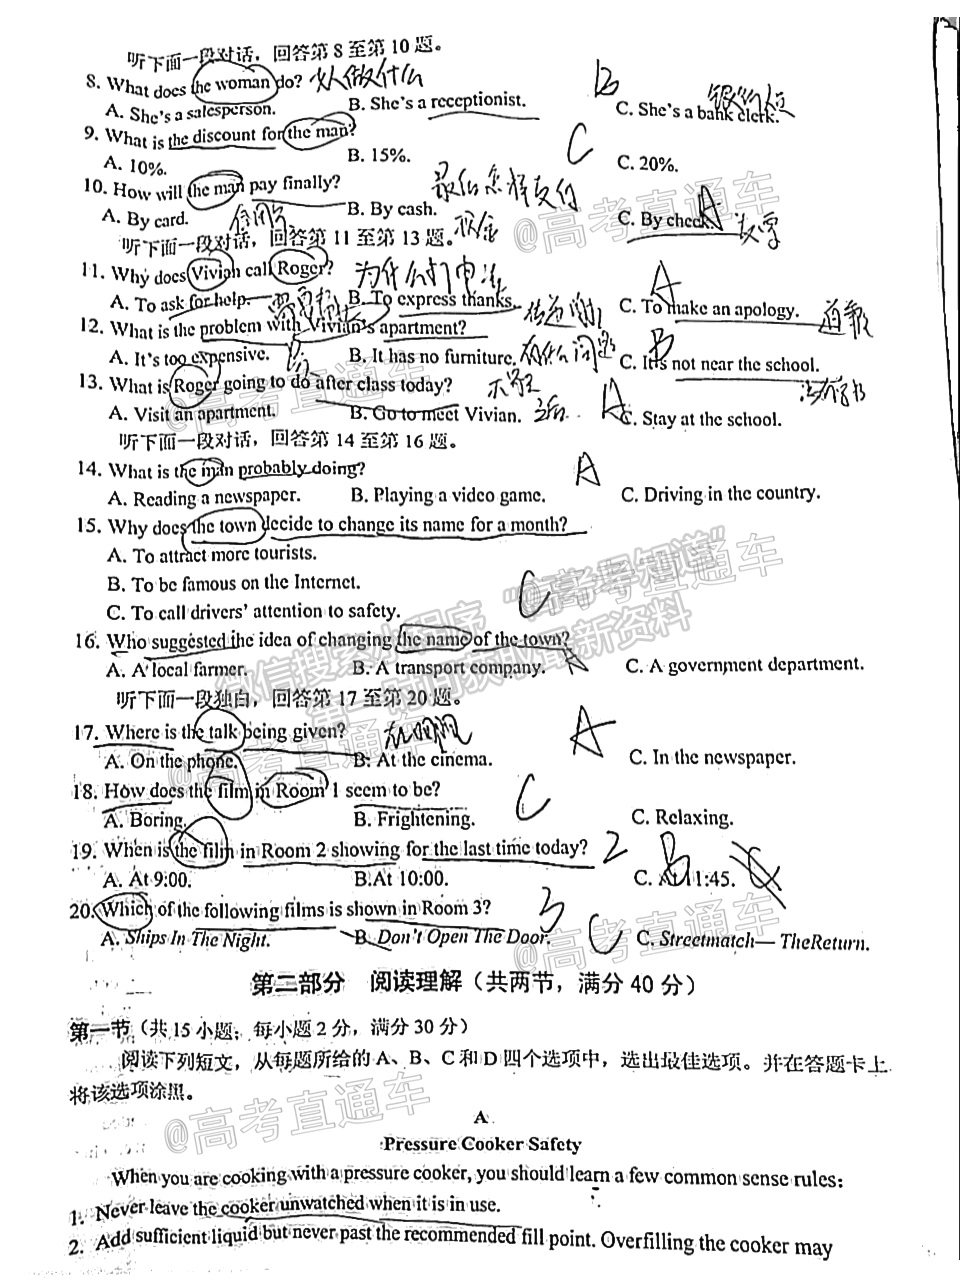 听下面一段对话，回答第 8 至第 10 题。
8. What does the woman do? 女人做什么 B
A. She's a salesperson. B. She's a receptionist. C. She's a bank clerk.
9. What is the discount for the man? C
A. 10%. B. 15%. C. 20%.
10. How will the man pay finally? 最后怎样支付 A
A. By card. B. By cash. 现金 C. By check.
听下面一段对话，回答第 11 至第 13 题。
11. Why does Vivian call Roger? 为什么打电话 A
A. To ask for help. B. To express thanks. C. To make an apology. 道歉
12. What is the problem with Vivian's apartment? 有什么问题 B
A. It's too expensive. B. It has no furniture. C. It's not near the school.
13. What is Roger going to do after class today? A
A. Visit an apartment. B. Go to meet Vivian. C. Stay at the school.
听下面一段对话，回答第 14 至第 16 题。
14. What is the man probably doing? A
A. Reading a newspaper. B. Playing a video game. C. Driving in the country.
15. Why does the town decide to change its name for a month?
A. To attract more tourists.
B. To be famous on the Internet.
C. To call drivers' attention to safety. C
16. Who suggested the idea of changing the name of the town?
A. A local farmer. B. A transport company. C. A government department.
听下面一段独白，回答第 17 至第 20 题。
17. Where is the talk being given? A
A. On the phone. B. At the cinema. C. In the newspaper.
18. How does the film in Room 1 seem to be? C
A. Boring. B. Frightening. C. Relaxing.
19. When is the film in Room 2 showing for the last time today? 2 B
A. At 9:00. B.At 10:00. C. At 11:45.
20. Which of the following films is shown in Room 3? 3 C
A. Ships In The Night. B. Don't Open The Door. C. Streetmatch— TheReturn.
第二部分 阅读理解（共两节，满分 40 分）
第一节（共 15 小题；每小题 2 分，满分 30 分）
阅读下列短文，从每题所给的 A、B、C 和 D 四个选项中，选出最佳选项。并在答题卡上
将该选项涂黑。
A
Pressure Cooker Safety
When you are cooking with a pressure cooker, you should learn a few common sense rules:
1. Never leave the cooker unwatched when it is in use.
2. Add sufficient liquid but never past the recommended fill point. Overfilling the cooker may
@高考直通车
@高考直通车
@高考直通车
@高考直通车
@高考直通车
@高考直通车
微信搜索小程序“高考早知道”
第一时间获取最新资料